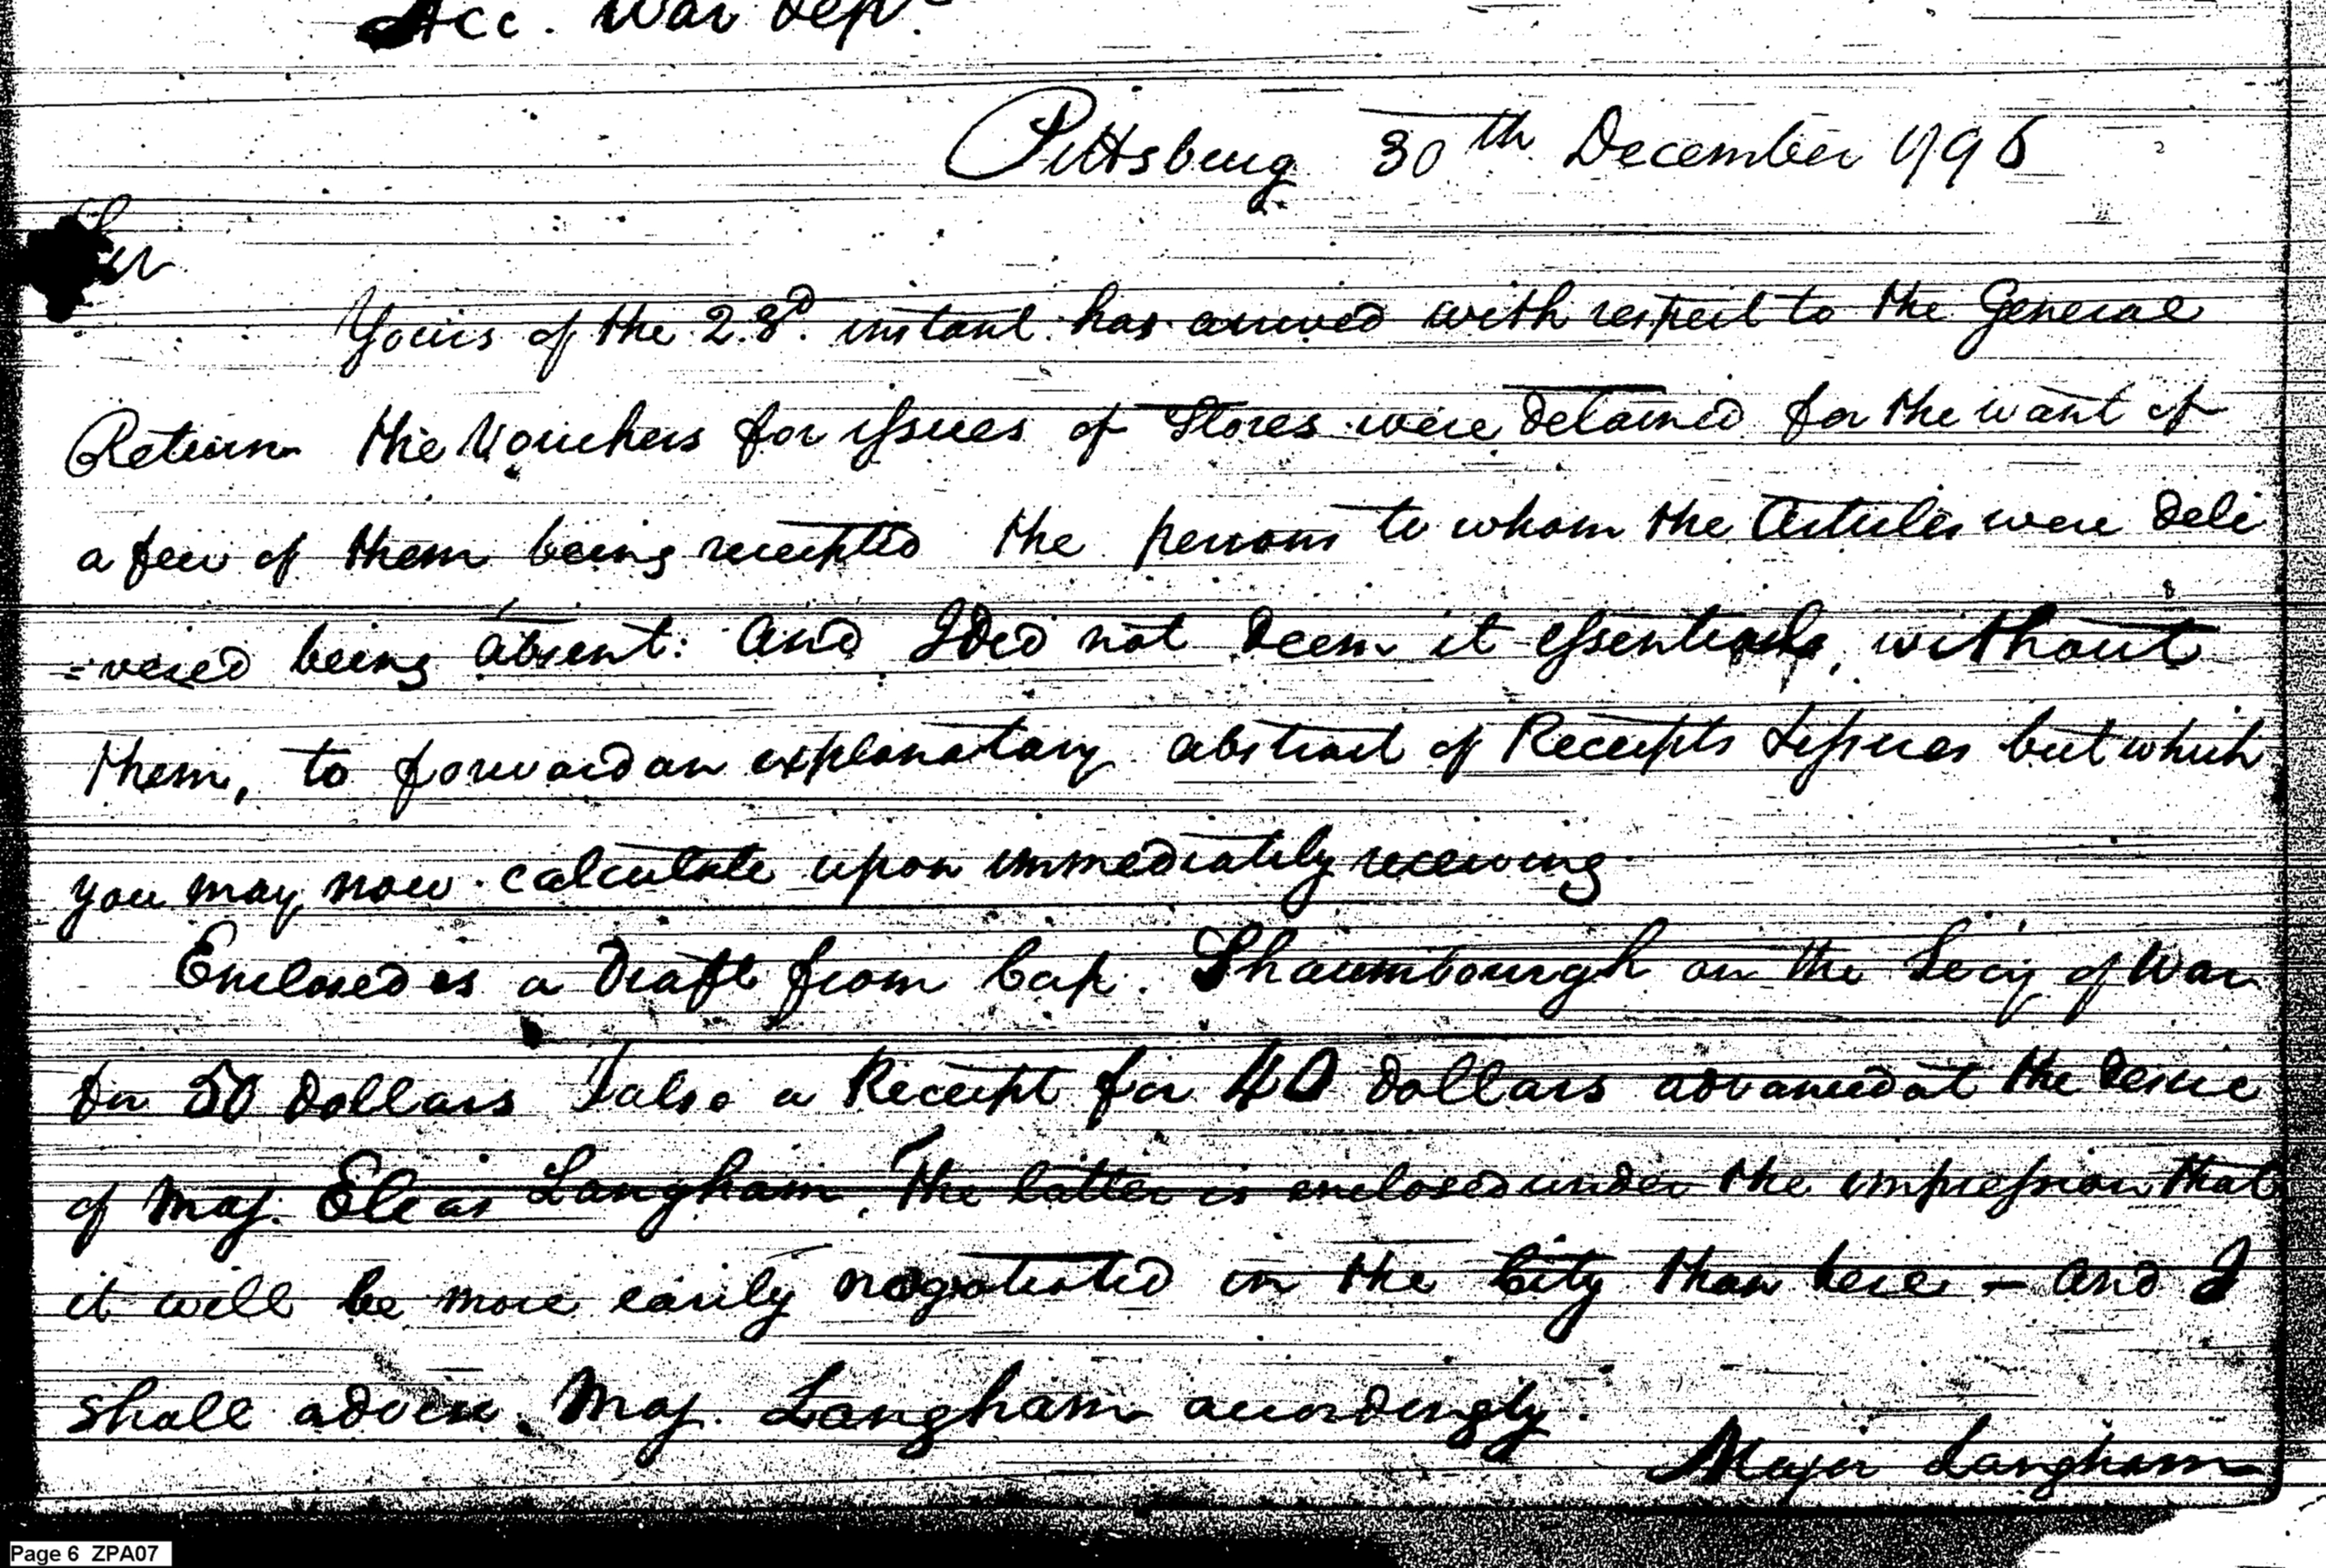 Acc. War Dept.
Pittsburg 30th December 1796
Sir
Yours of the 23d. instant has arrived with respect to the General
Return the Vouchers for issues of Stores were detained for the want of
a few of them being receipted the persons to whom the Articles were deli
=vered being absent: and I did not deem it essential, without
them, to forward an explanatory abstract of Receipts & issues but which
you may now calculate upon immediately receiving
Enclosed is a Draft from Cap. Shaumbourgh on the Secy of War
for 50 Dollars & also a Receipt for 40 Dollars advanced at the desire
of Maj. Eleas Langham. The latter is enclosed under the impression that
it will be more easily negotiated in the City than here – and I
shall advise Maj. Langham accordingly.
Major Langham
Page 6 ZPA07